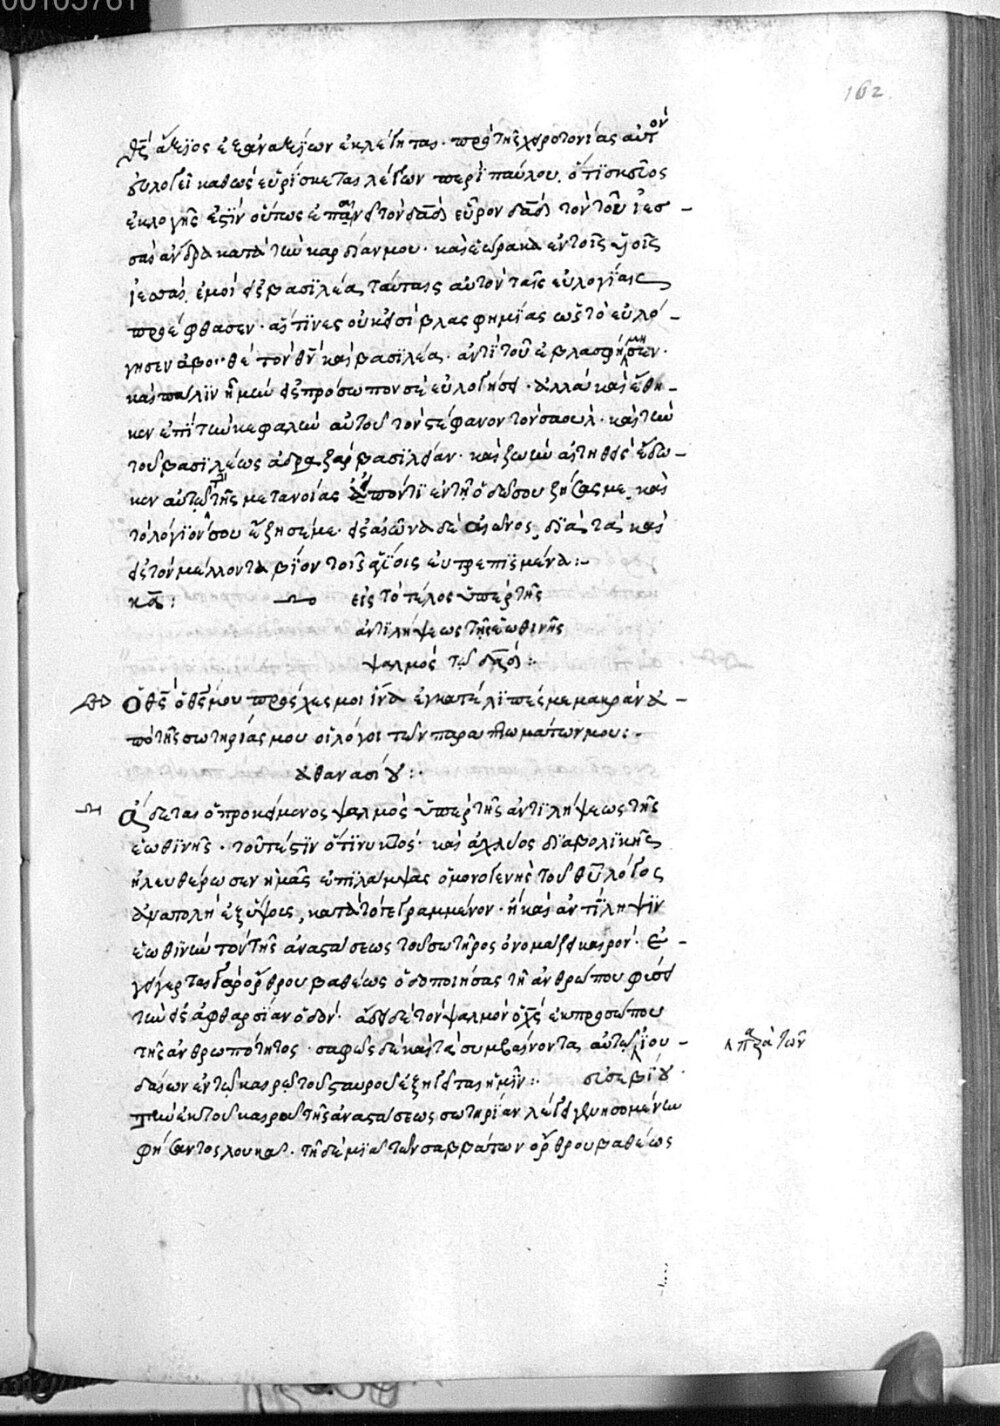 00103761
162
θεῷ ἄξιος ἐξ ἀναξίων ἐκλέγηται. πρὸ τῆς χειροτονίας αὐτὸν
εὐλογεῖ καθὼς εὑρίσκεται λέγων περὶ παύλου. ὅτι σκεῦος
ἐκλογῆς ἐστὶν οὕτως δᾱδ εὗρον δᾱδ τὸν τοῦ ἰεσ
σαὶ ἄνδρα κατὰ τὴν καρδίαν μου. καὶ ἑώρακα ἐν τοῖς υἱοῖς
ἰεσσαὶ ἐμοὶ εἰς βασιλέα, ταύταις αὐτὸν ταῖς εὐλογίαις
προέφθασεν. αἵτινες οὐκ εἰσὶ βλασφημίας ὡς τὸ εὐλό
γησεν θν καὶ βασιλέα. ἀντὶ τοῦ ἐβλασφήμησεν.
καὶ πάλιν ἦ μὴν εἰς πρόσωπον σὲ εὐλογήσει. ἀλλὰ καὶ ἔθη
κεν ἐπὶ τὴν κεφαλὴν αὐτοῦ τὸν στέφανον τὸν σαούλ. καὶ τὴν
τοῦ βασιλέως βασιλείαν. καὶ ζωὴν ἔδω
κεν αὐτῷ τῆς μετανοίας εἰπόντι ἐν τῇ ὁδῷ σου ζῆσόν με, καὶ
τὸ λόγιόν σου ἔζησέ με. εἰς αἰῶνα δὲ αἰῶνος, διὰ τὰ καὶ
εἰς τὸν μέλλοντα βίον τοῖς ἁγίοις εὐτρεπισμένα:-
κα: εἰς τὸ τέλος ὑπὲρ τῆς
ἀντιλήψεως τῆς ἑωθινῆς
ψαλμὸς τῷ δᾱδ:-
ὁ θς ὁ θς μου πρόσχες μοι ἵνα ἐγκατέλιπές με μακρὰν ἀ
πὸ τῆς σωτηρίας μου οἱ λόγοι τῶν παραπτωμάτων μου:-
ἀθανασίου:-
ᾄδεται ὁ προκείμενος ψαλμὸς ὑπὲρ τῆς ἀντιλήψεως τῆς
ἑωθινῆς. τουτέστιν ὅτι νυκτὸς καὶ ἀχλύος διαβολικῆς
ἠλευθέρωσεν ἡμᾶς ἐπιλάμψας ὁ μονογενὴς τοῦ θυ λόγος
ἀνατολὴ ἐξ ὕψους, κατὰ τὸ γεγραμμένον. ἢ καὶ ἀντίληψιν
ἑωθινὴν τὸν τῆς ἀναστάσεως τοῦ σωτῆρος ὀνομάζει καιρόν. ἐ
γήγερται γὰρ ὄρθρου βαθέως ὁδοποιήσας τῇ ἀνθρώπου φύσει
τὴν εἰς ἀφθαρσίαν ὁδόν. ᾄδει δὲ τὸν ψαλμὸν ὁ χς ἐκ προσώπου
τῆς ἀνθρωπότητος. σαφῶς δὲ καὶ τὰ συμβαίνοντα αὐτῷ ἰου
παρὰ τῶν
δαίων ἐν τῷ καιρῷ τοῦ σταυροῦ ἐξηγεῖται ἡμῖν:- εὐσεβίου.
τὴν ἐκ τοῦ καιροῦ τῆς ἀναστάσεως σωτηρίαν λέγει γενησομένην
φήσαντος λουκᾶ. τῇ δὲ μιᾷ τῶν σαββάτων ὄρθρου βαθέως